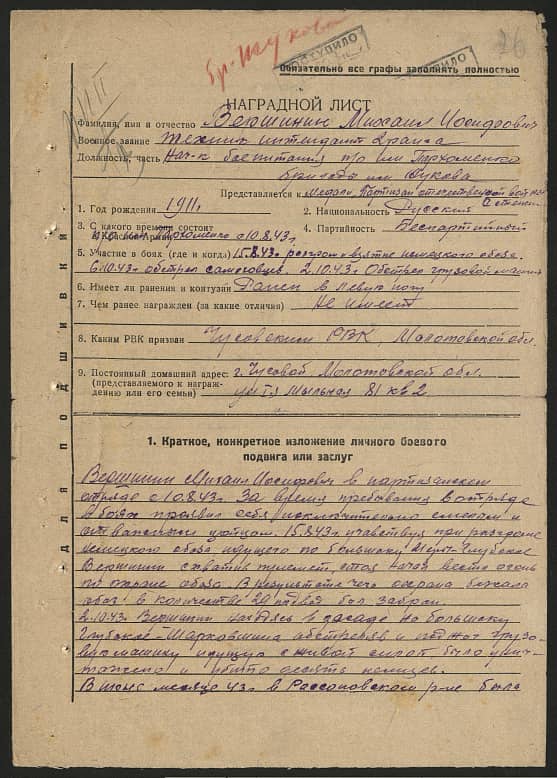 бр. Жукова
ПОСТУПИЛО
26
Обязательно все графы заполнять полностью
НАГРАДНОЙ ЛИСТ
Фамилия, имя и отчество Вершинин Михаил Иосифович
Военное звание техник интендант 2 ранга
Должность, часть Нач-к боепитания п/о им Пархоменко
бригада им Жукова
Представляется к медали Партизан отечественной войны
2 степени
1. Год рождения 1911г. 2. Национальность Русский
3. С какого времени состоит 4. Партийность Беспартийный
Пархоменко с 10.8.43г.
5. Участие в боях (где и когда) 15.8.43г. разгром и взятие немецкого обоза.
обстрел самоговцев. 2.10.43г. Обстрел грузовой машины
6. Имеет ли ранения и контузии Ранен в левую ногу
7. Чем ранее награжден (за какие отличия) Не имеет
8. Каким РВК призван Чусовским РВК, Молотовской обл.
9. Постоянный домашний адрес: г. Чусовой Молотовской обл.
(представляемого к награж-
дению или его семьи) Мыльная 81 кв 2
для подшивки
1. Краткое, конкретное изложение личного боевого
подвига или заслуг
Вершинин Михаил Иосифович в партизанском
отряде с 10.8.43г. За время пребывания в отряде
в боях проявил себя исключительно смелым и
отважным бойцом. 15.8.43г. участвуя при разгроме
немецкого обоза, идущего по большаку Глубокое
Вершинин схватив пулемет, стоя начал вести огонь
по охране обоза. В результате чего охрана бежала
обоз в количестве 20 подвод был забран.
2.10.43г. Вершинин находясь в засаде на большаку
Глубокое-Шарковщина обстреляв и поджог грузо-
вую машину идущую с живой силой было унич-
тожено и убито десять немцев.
В июне месяце 43г. в Россоновском р-не была